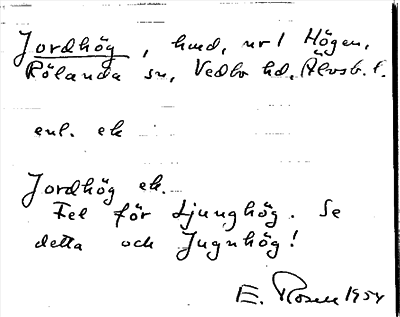 Jordhög, hmd, nr 1 Högen,
Rölanda sn, Vedbo hd, Älvsb. l.
enl. ek
Jordhög ek.
Fel för Ljunghög. Se
detta och Jugnhög!
E. Rosell 1954